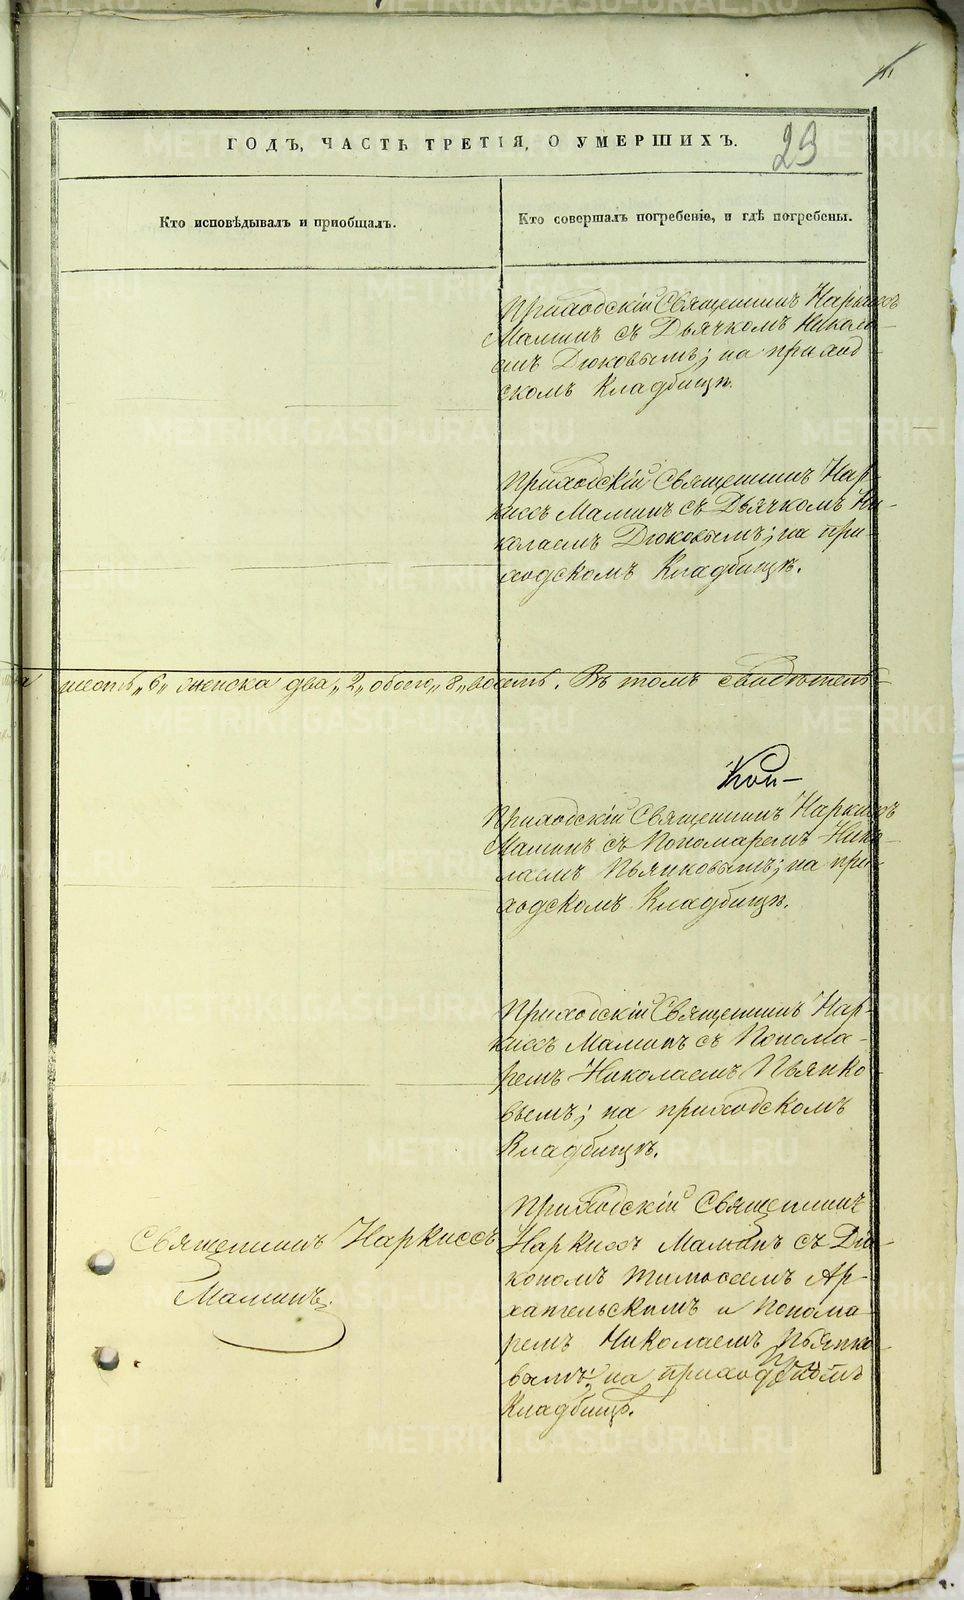 29
ГОДЪ, ЧАСТЬ ТРЕТІЯ, О УМЕРШИХЪ.
Кто исповѣдывалъ и пріобщалъ.
Кто совершалъ погребеніе, и гдѣ погребены.
Приходскій Священникъ Наркиссъ
Маминъ съ Дьячкомъ Никола-
емъ Дюковымъ; на приход-
скомъ Кладбищѣ.
Приходскій Священникъ Нар-
киссъ Маминъ съ Дьячкомъ Ни-
колаемъ Дюковымъ; на при-
ходскомъ Кладбищѣ.
шесть „6„ женска два „2„ обоего „8„ восемь. Въ томъ свидѣтель-
Коп-
Приходскій Священникъ Наркиссъ
Маминъ съ Пономаремъ Нико-
лаемъ Пьянковымъ; на при-
ходскомъ Кладбищѣ.
Приходскій Священникъ Нар-
киссъ Маминъ съ Понома-
ремъ Николаемъ Пьянко-
вымъ; на приходскомъ
Кладбищѣ.
Священникъ Наркиссъ
Маминъ.
Приходскій Священникъ
Наркиссъ Маминъ съ Діа-
кономъ Тимофеемъ Ар-
хангельскимъ и Понома-
ремъ Николаемъ Пьянко-
вымъ; на приходскомъ
Кладбищѣ.
METRIKI.GASO-URAL.RU